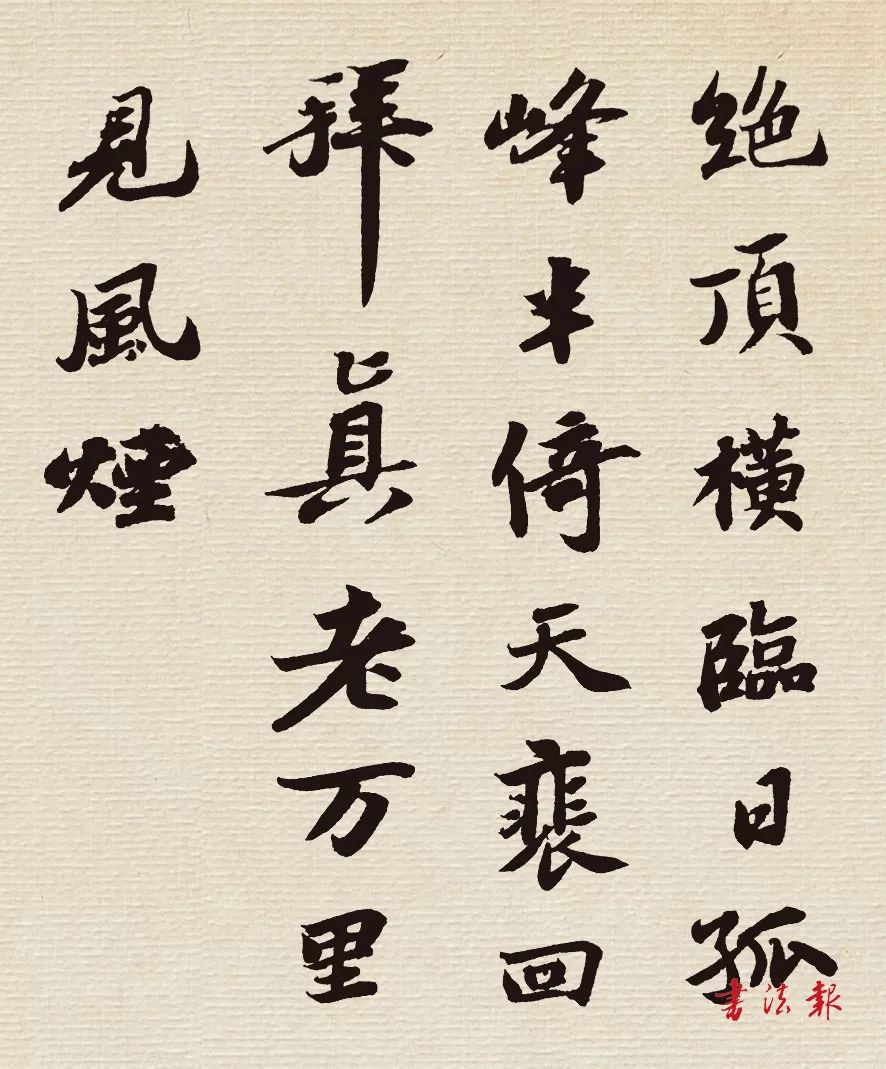 絶頂橫臨日孤
峰半倚天裴回
拜真老万里
見風煙
書法報